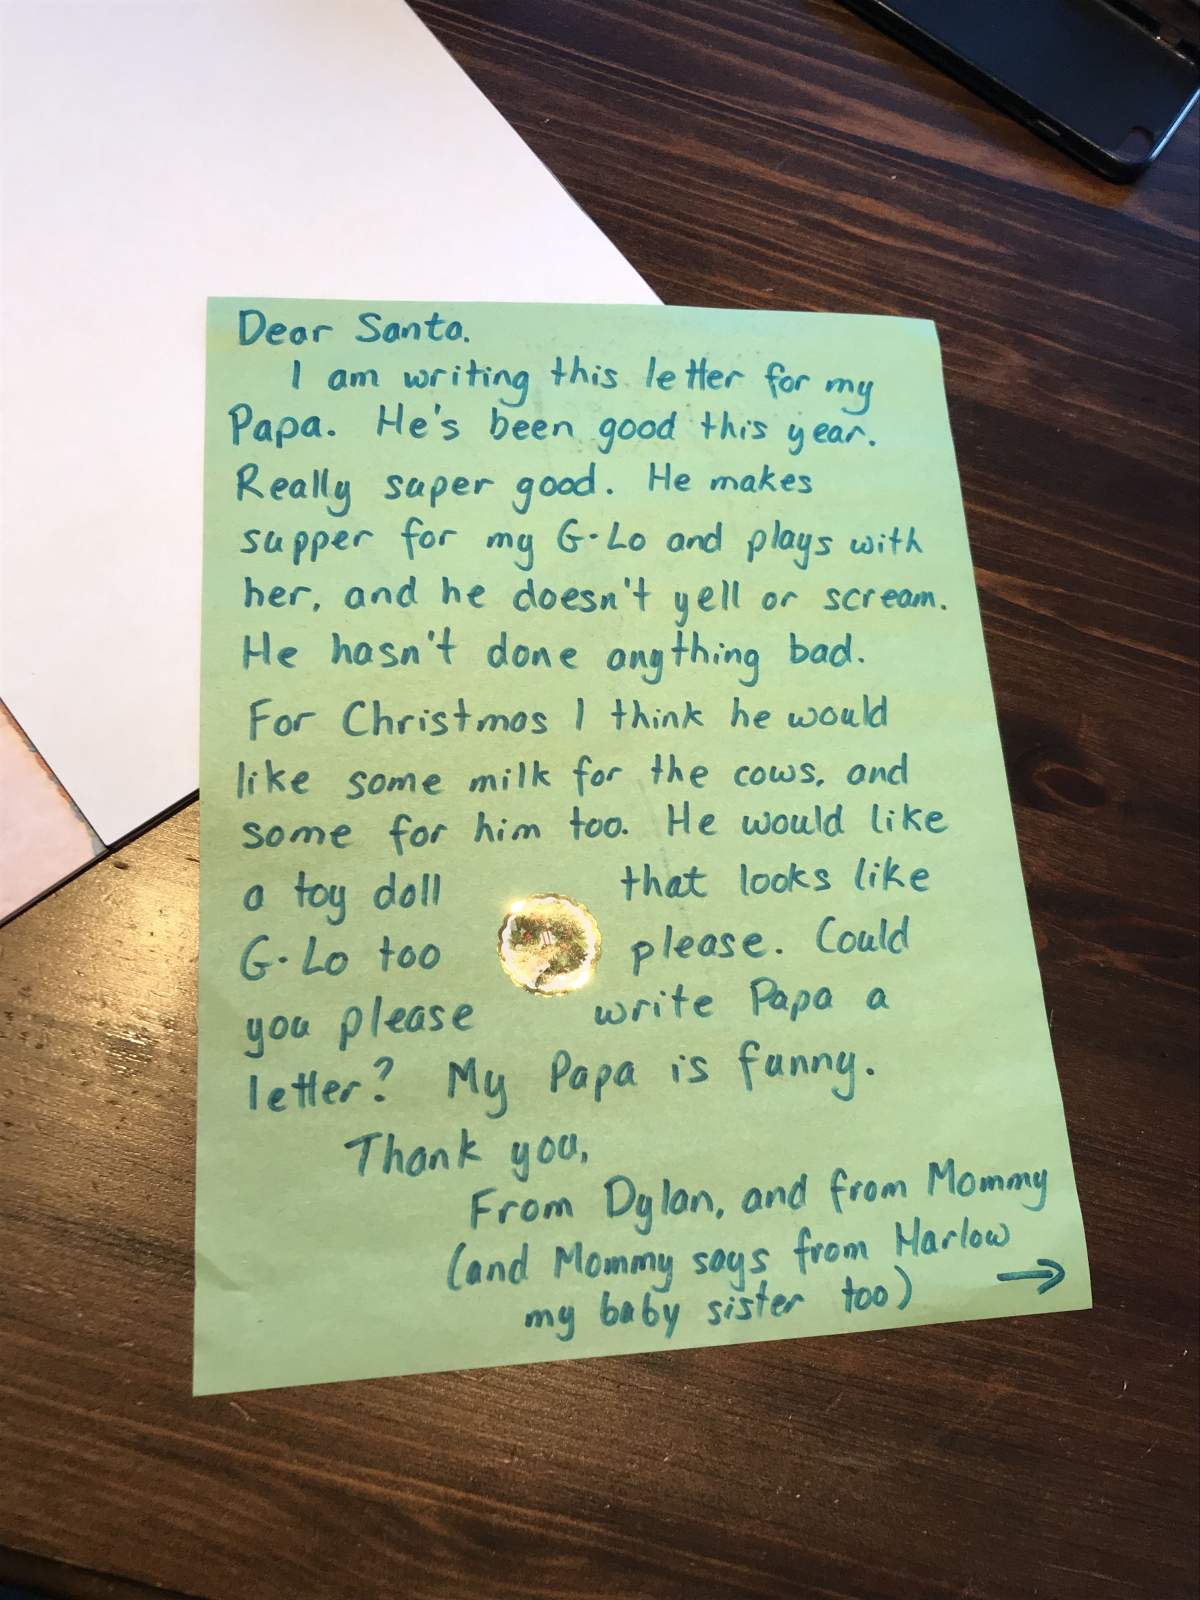 Dear Santa.
I am writing this letter for my
Papa. He's been good this year.
Really super good. He makes
supper for my G-Lo and plays with
her, and he doesn't yell or scream.
He hasn't done anything bad.
For Christmas I think he would
like some milk for the cows, and
some for him too. He would like
a toy doll that looks like
G-Lo too please. Could
you please write Papa a
letter? My Papa is funny.
Thank you,
From Dylan, and from Mommy
(and Mommy says from Harlow
my baby sister too) →